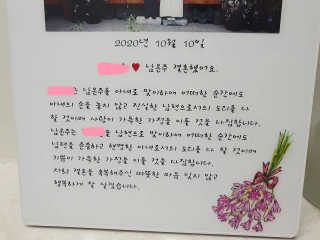 2020년 10월 10일
♥ 남은주 결혼했어요.
는 남은주를 아내로 맞이하여 어떠한 순간에도
아내의 손을 놓지 않고 진실한 남편으로서의 도리를 다
할 것이며 사랑이 가득한 가정을 이룰 것을 다짐합니다.
남은주는 을 남편으로 맞이하여 어떠한 순간에도
남편을 존중하고 현명한 아내로서의 도리를 다 할 것이며
기쁨이 가득한 가정을 이룰 것을 다짐합니다.
저희 결혼을 축복해주신 따뜻한 마음 잊지 않고
행복하게 잘 살겠습니다.